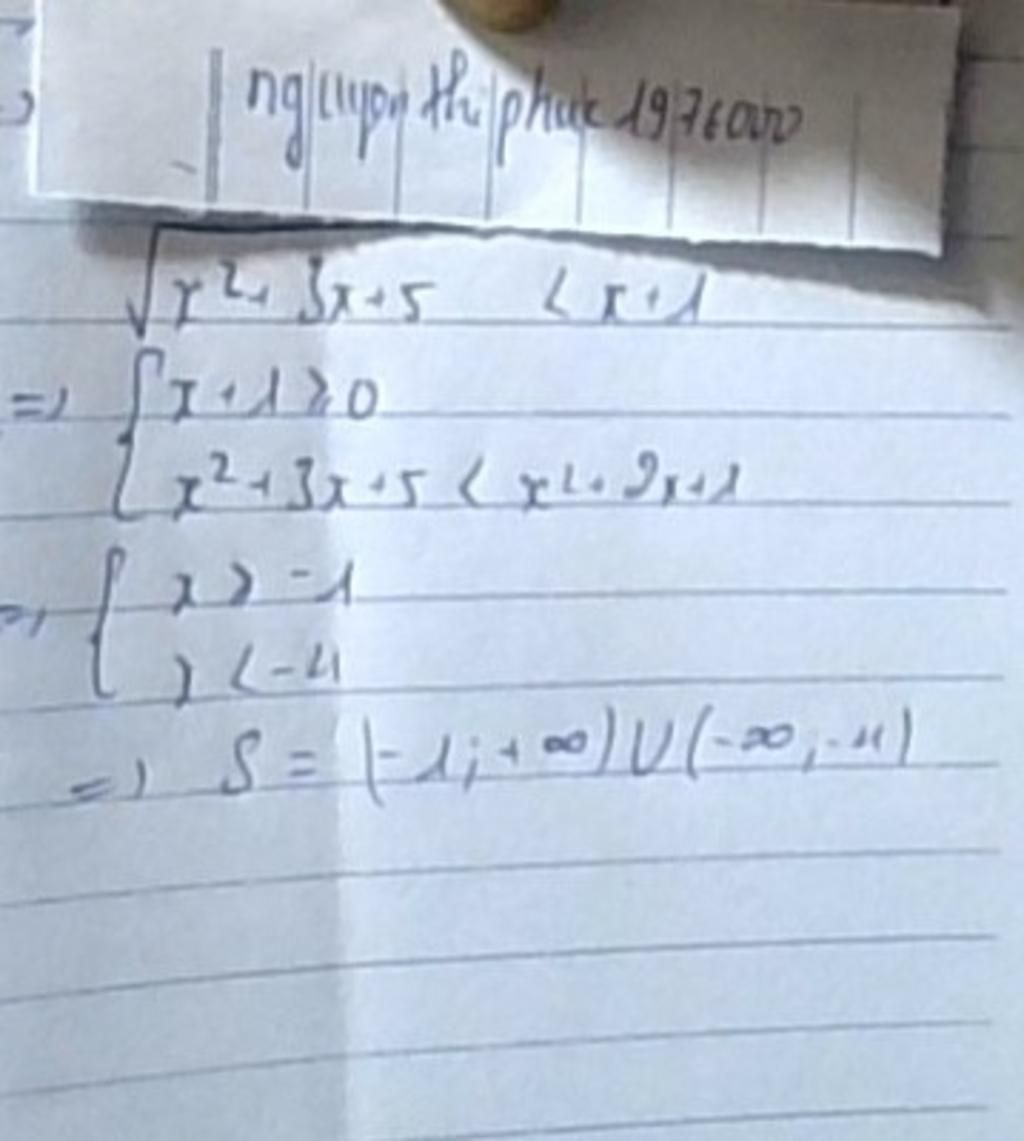 thị phuc 197600
√x²+3x+5 < x+1
=> { x+1 ≥ 0
x²+3x+5 < x²+2x+1
=> { x ≥ -1
x < -4
=> S = (-1; +∞) U (-∞; -4)